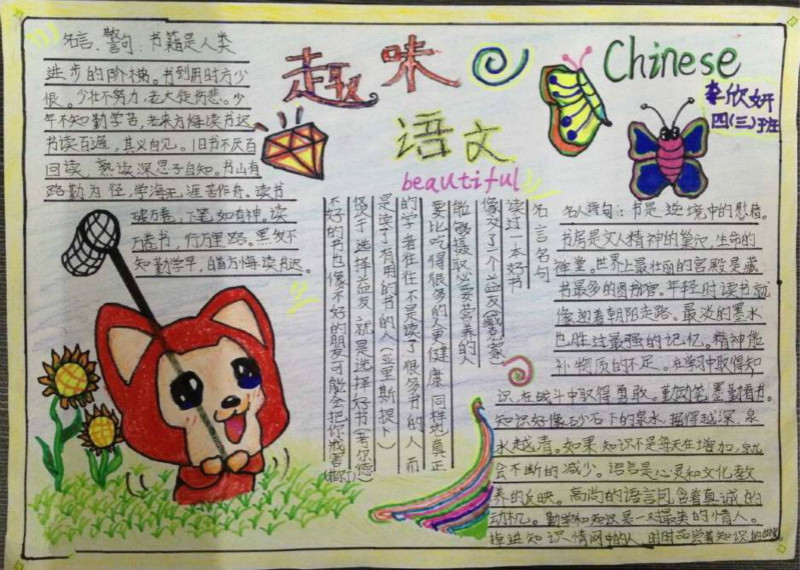 趣味
语文
beautiful
Chinese
李欣妍
四(三)班
名言、警句:书籍是人类
进步的阶梯。书到用时方少
恨。少壮不努力,老大徒伤悲。少
年不知勤学苦,老来方悔读书迟
书读百遍,其义自见。旧书不厌百
回读,熟读深思子自知。书山有
路勤为径,学海无涯苦作舟。读书
破万卷,下笔如有神。读
万卷书,行万里路。黑发不
知勤学早,白首方悔读书迟。
名言名句
读过一本好书
像交了一个益友
能够摄取必要营养的人
要比吃得很多的人更健康,同样地真正
的学者往往不是读了很多书的人,而
是读了有用的书的人(亚里斯提卜)
选择益友,就是选择好书
不好的书也像不好的朋友可能会把你戕害
名人语句:书是逆境中的慰藉。
书房是文人精神的巢穴,生命的
禅堂。世界上最壮丽的宫殿是藏
书最多的图书馆。年轻时读书就
像迎着朝阳走路。最淡的墨水
也胜过最强的记忆。精神能
补物质的不足。在学习中取得知
识,在战斗中取得勇敢。勤动笔墨勤看书。
知识好像砂石下的泉水,掘得越深,泉
水越清。如果知识不是每天在增加,就
会不断的减少。语言是心灵和文化教
养的反映。高尚的语言包含着真诚的
动机。勤学和知识是一对最美的情人。
掉进知识情网中的人,时时品尝着知识的